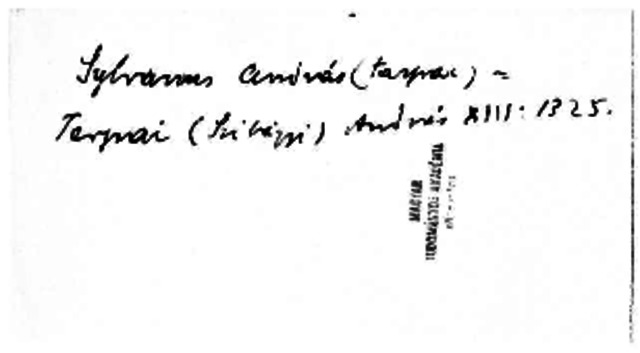 Sylvanus András (tarpai) =
Tarpai (Szilágyi) András XIII: 1325.
MAGYAR
TUDOMÁNYOS AKADÉMIA